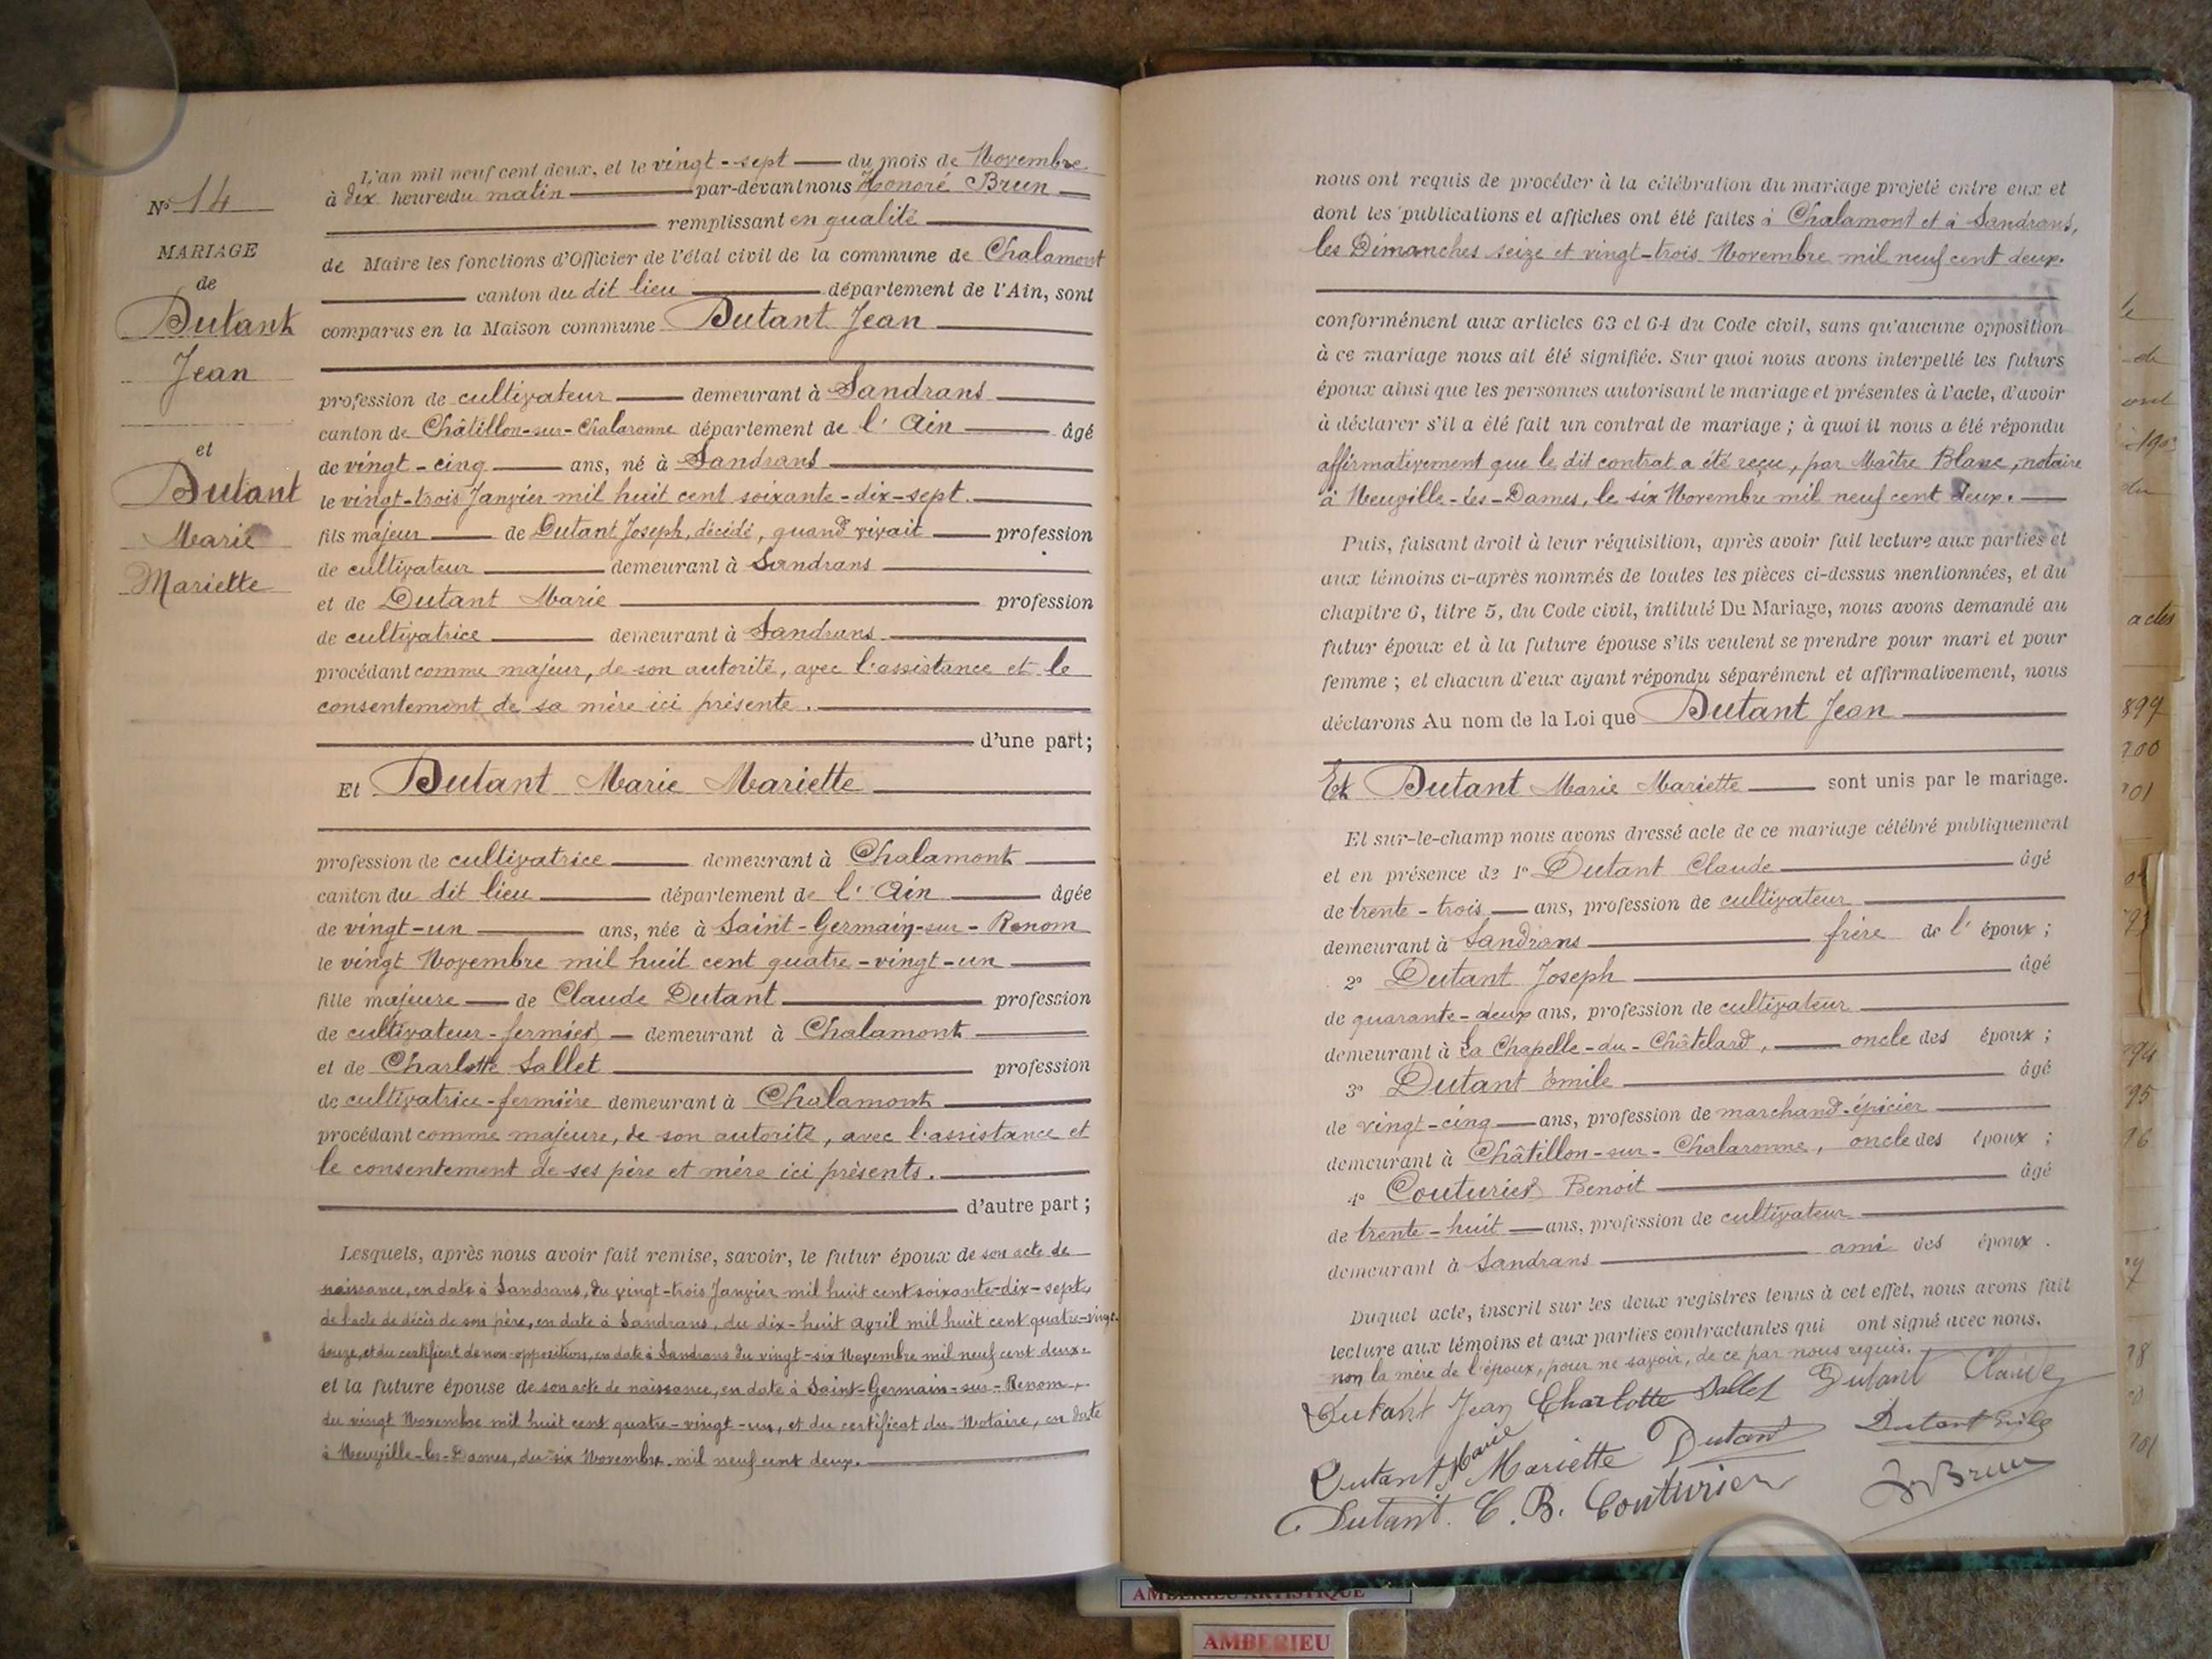 N° 14
MARIAGE
de
Dutant
Jean
et
Dutant
Marie
Mariette
L'an mil neuf cent deux, et le vingt-sept du mois de Novembre
à dix heures du matin par-devant nous Honoré Brun
remplissant en qualité
de Maire les fonctions d'Officier de l'état civil de la commune de Chalamont
canton du dit lieu département de l'Ain, sont
comparus en la Maison commune Dutant Jean
profession de cultivateur demeurant à Sandrans
canton de Châtillon-sur-Chalaronne département de l'Ain âgé
de vingt-cinq ans, né à Sandrans
le vingt-trois Janvier mil huit cent soixante-dix-sept.
fils majeur de Dutant Joseph, décédé, quand vivait profession
de cultivateur demeurant à Sandrans
et de Dutant Marie profession
de cultivatrice demeurant à Sandrans
procédant comme majeur, de son autorité, avec l'assistance et le
consentement de sa mère ici présente.
d'une part;
Et Dutant Marie Mariette
profession de cultivatrice demeurant à Chalamont
canton du dit lieu département de l'Ain âgée
de vingt-un ans, née à Saint-Germain-sur-Renom
le vingt Novembre mil huit cent quatre-vingt-un
fille majeure de Claude Dutant profession
de cultivateur-fermier demeurant à Chalamont
et de Charlotte Sallet profession
de cultivatrice-fermière demeurant à Chalamont
procédant comme majeure, de son autorité, avec l'assistance et
le consentement de ses père et mère ici présents.
d'autre part;
Lesquels, après nous avoir fait remise, savoir, le futur époux de son acte de
naissance, en date à Sandrans, du vingt-trois Janvier mil huit cent soixante-dix-sept,
de l'acte de décès de son père, en date à Sandrans, du dix-huit avril mil huit cent quatre-vingt-
douze, et du certificat de non-opposition, en date à Sandrans du vingt-six Novembre mil neuf cent deux.
et la future épouse de son acte de naissance, en date à Saint-Germain-sur-Renom,
du vingt Novembre mil huit cent quatre-vingt-un, et du certificat du Notaire, en date
à Neuville-les-Dames, du six Novembre mil neuf cent deux.
nous ont requis de procéder à la célébration du mariage projeté entre eux et
dont les publications et affiches ont été faites à Chalamont et à Sandrans,
les Dimanches seize et vingt-trois Novembre mil neuf cent deux.
conformément aux articles 63 et 64 du Code civil, sans qu'aucune opposition
à ce mariage nous ait été signifiée. Sur quoi nous avons interpellé les futurs
époux ainsi que les personnes autorisant le mariage et présentes à l'acte, d'avoir
à déclarer s'il a été fait un contrat de mariage; à quoi il nous a été répondu
affirmativement que le dit contrat a été reçu, par Maître Blanc, notaire
à Neuville-les-Dames, le six Novembre mil neuf cent deux.
Puis, faisant droit à leur réquisition, après avoir fait lecture aux parties et
aux témoins ci-après nommés de toutes les pièces ci-dessus mentionnées, et du
chapitre 6, titre 5, du Code civil, intitulé Du Mariage, nous avons demandé au
futur époux et à la future épouse s'ils veulent se prendre pour mari et pour
femme; et chacun d'eux ayant répondu séparément et affirmativement, nous
déclarons Au nom de la Loi que Dutant Jean
Et Dutant Marie Mariette sont unis par le mariage.
Et sur-le-champ nous avons dressé acte de ce mariage célébré publiquement
et en présence de 1° Dutant Claude âgé
de trente-trois ans, profession de cultivateur
demeurant à Sandrans frère de l'époux;
2° Dutant Joseph âgé
de quarante-deux ans, profession de cultivateur
demeurant à La Chapelle-du-Châtelard, oncle des époux;
3° Dutant Emile âgé
de vingt-cinq ans, profession de marchand-épicier
demeurant à Châtillon-sur-Chalaronne, oncle des époux;
4° Couturier Benoit âgé
de trente-huit ans, profession de cultivateur
demeurant à Sandrans ami des époux.
Duquel acte, inscrit sur les deux registres tenus à cet effet, nous avons fait
lecture aux témoins et aux parties contractantes qui ont signé avec nous.
non la mère de l'époux, pour ne savoir, de ce par nous requis.
Dutant Jean Charlotte Sallet Dutant Claude
Dutant Marie Mariette Dutant Dutant Emile
Dutant. C. B. Couturier H Brun
actes
899
900
AMBERIEU ARTISTIQUE
AMBERIEU